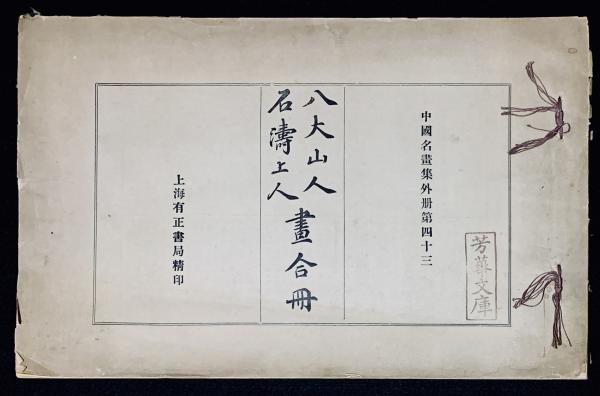 中國名畫集外册第四十三
八大山人
石濤上人
畫合冊
上海有正書局精印
芳華文庫